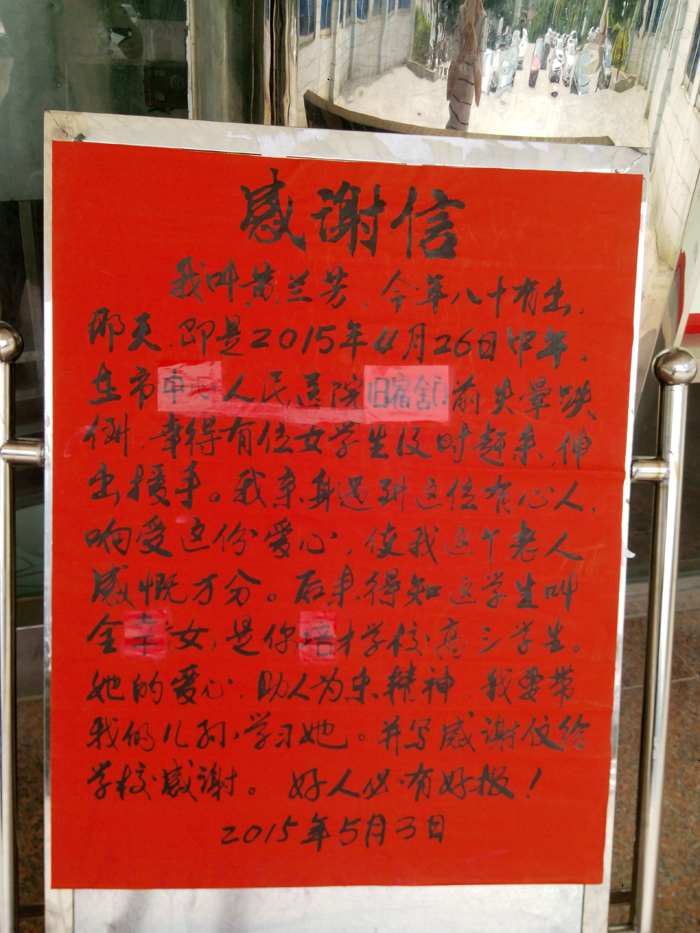 感谢信
我叫黄兰芳、今年八十有出,
那天、即是2015年4月26日中年,
在市中 人民医院旧宿舍门前失晕跌
倒、幸得有位女学生及时赶来,伸
出援手。我亲身遇到这位有心人,
响受这份爱心,使我这个老人
感慨万分。后来得知这学生叫
全幸女,是你培才学校高三学生。
她的爱心、助人为乐精神,我要带
我的儿孙,学习她。并写感谢信给
学校感谢。好人必有好报!
2015年5月3日